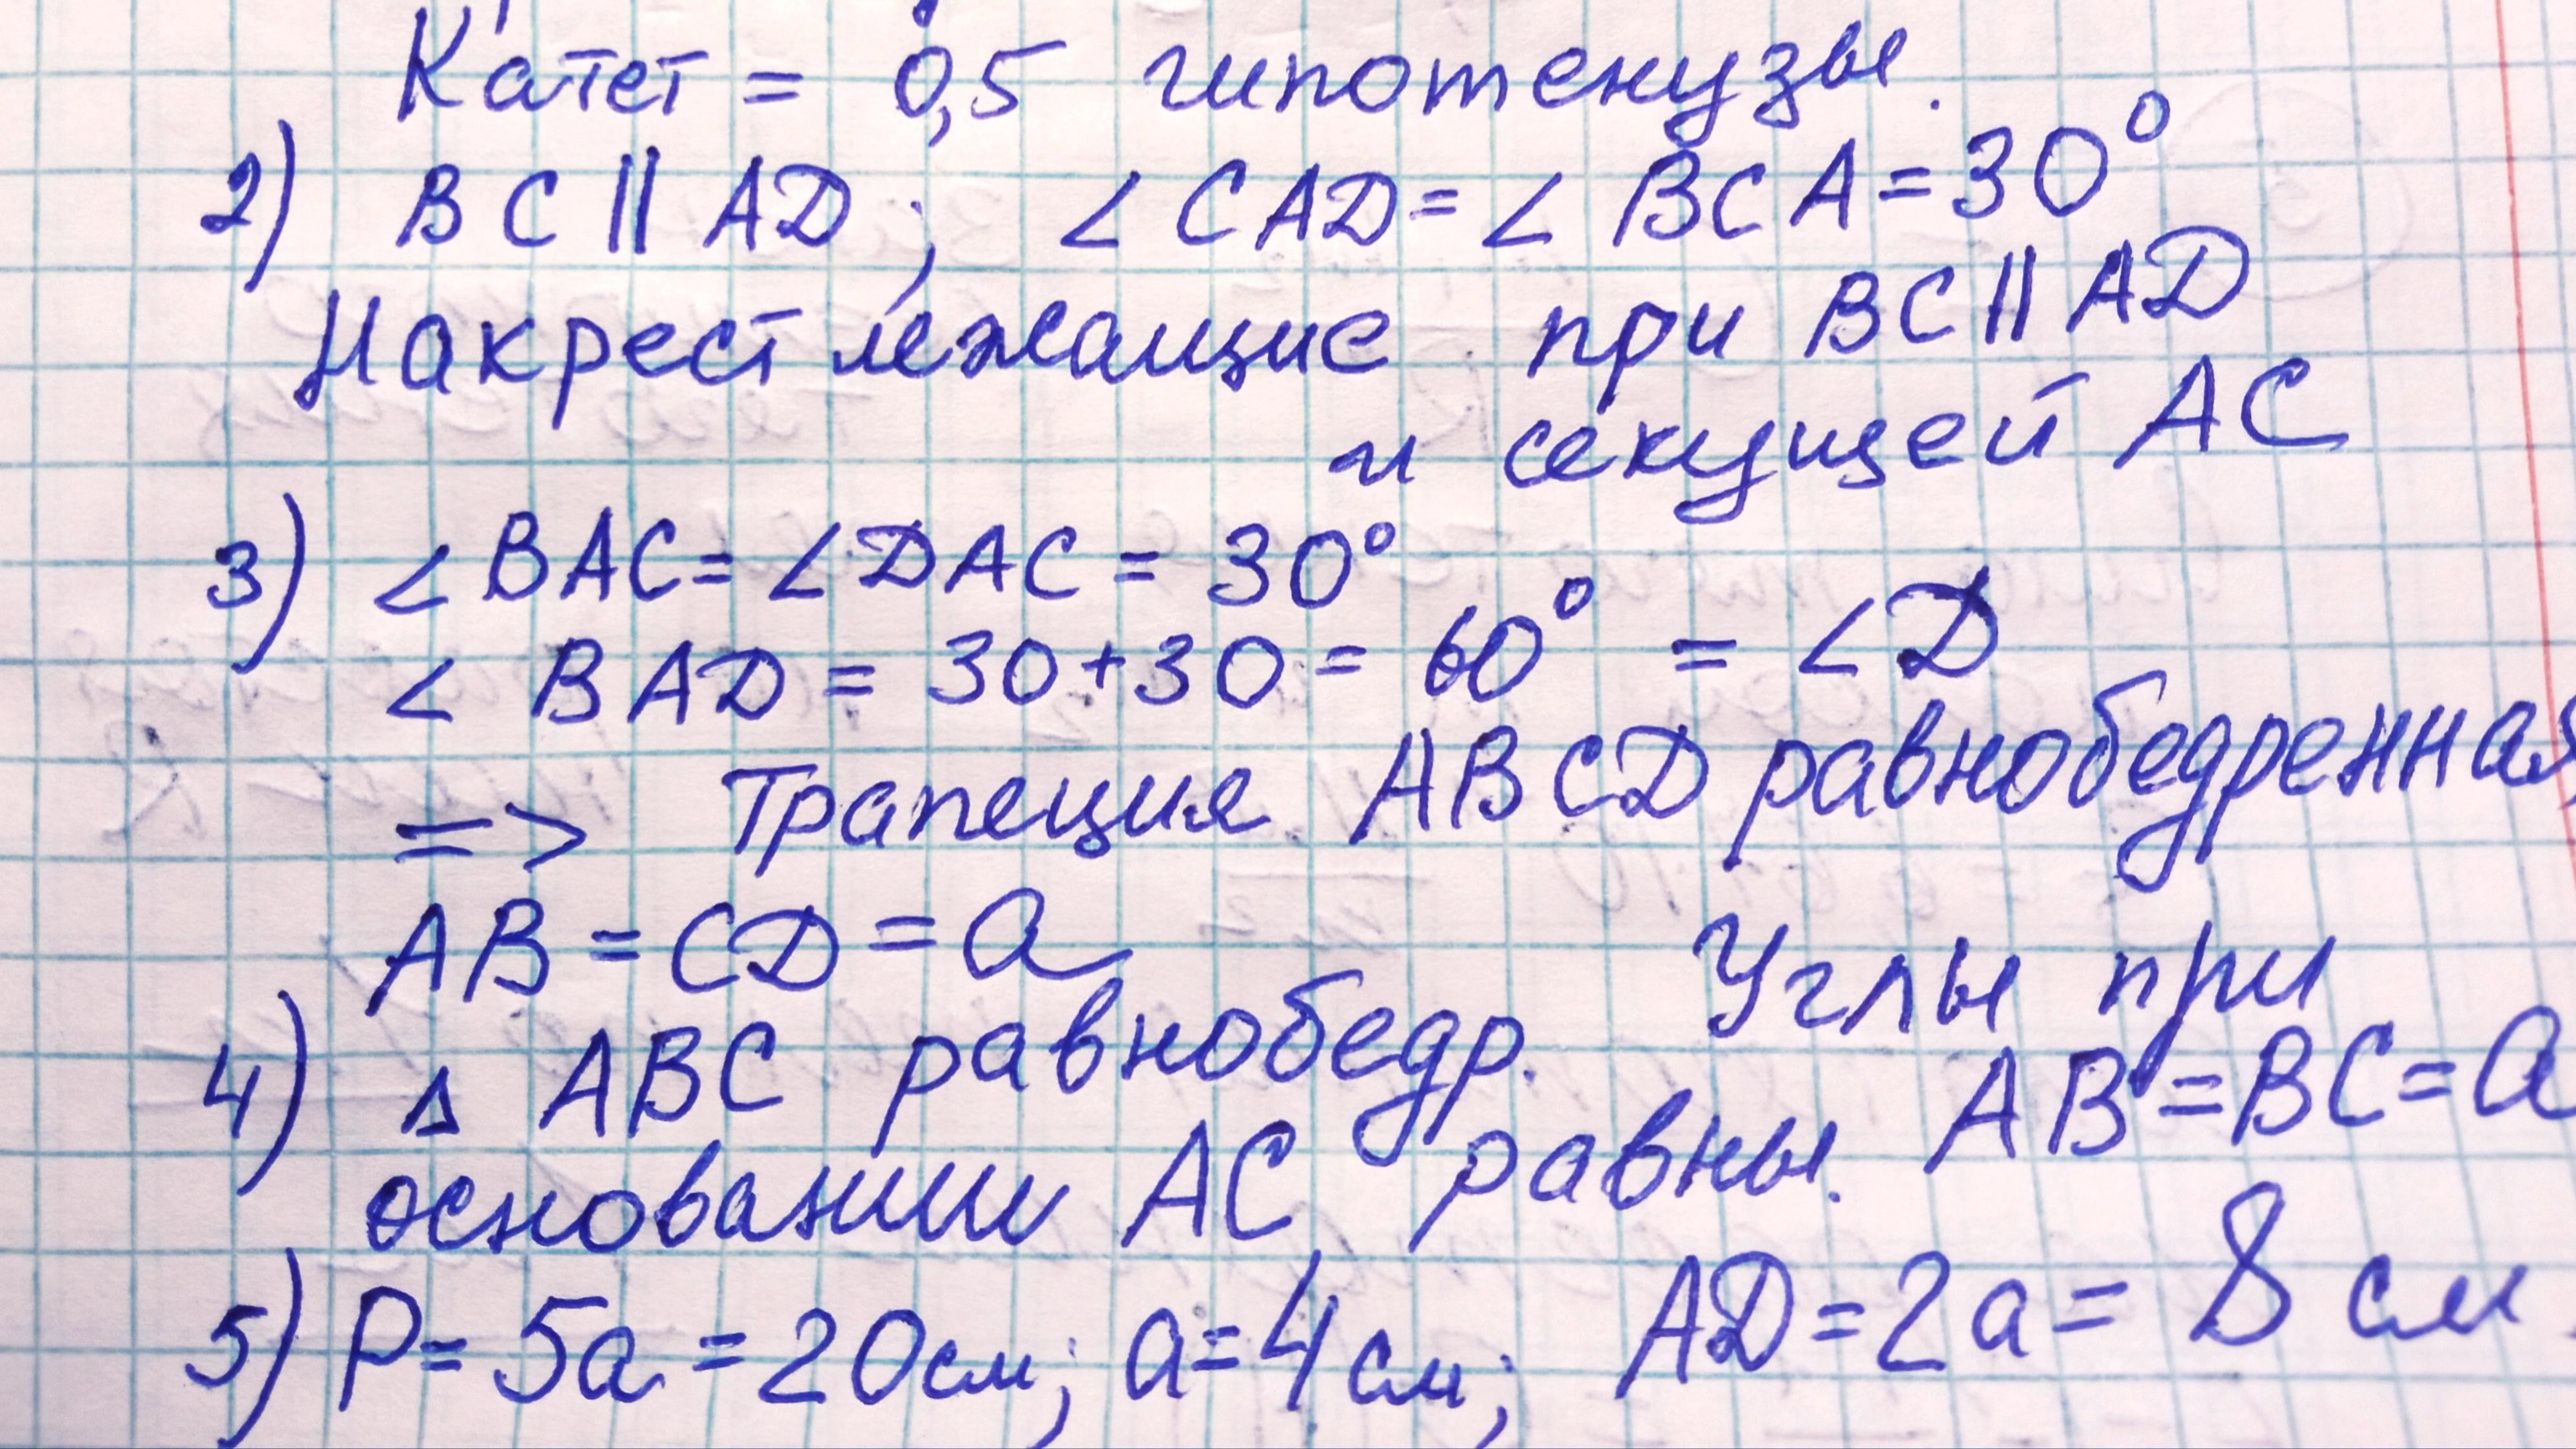 Катет = 0,5 гипотенузы.
2) BC || AD; ∠CAD = ∠BCA = 30°
Накрест лежащие при BC || AD
и секущей AC
3) ∠BAC = ∠DAC = 30°
∠BAD = 30+30 = 60° = ∠D
=> Трапеция ABCD равнобедренная,
AB = CD = a
4) Δ ABC равнобедр. Углы при
основании AC равны. AB = BC = a
5) P = 5a = 20см; a = 4см; AD = 2a = 8 см